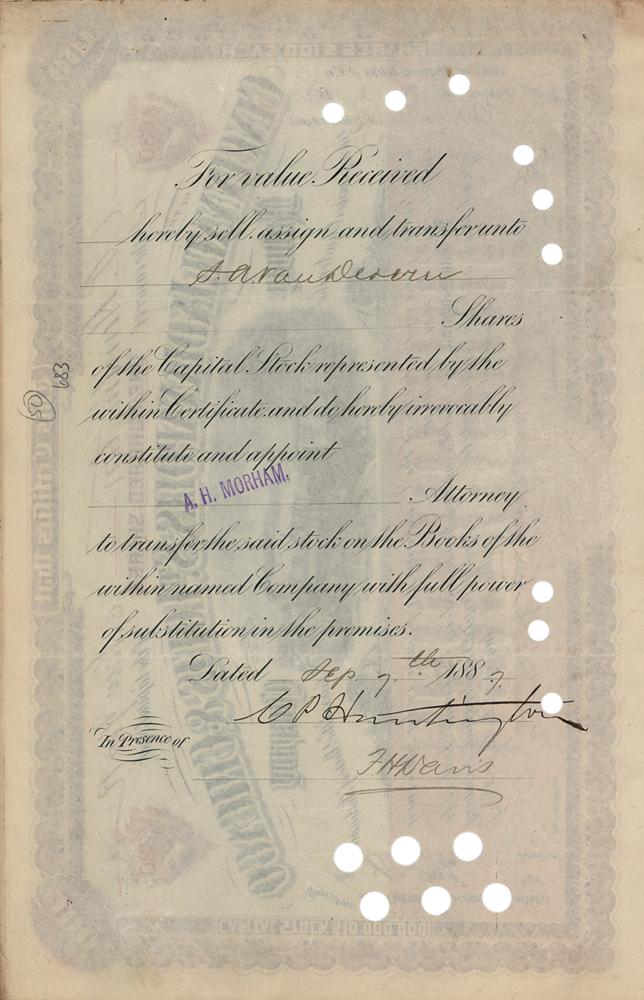 For value Received
hereby sell, assign and transfer unto
Shares
of the Capital Stock represented by the
within Certificate and do hereby irrevocably
constitute and appoint
A. H. MORHAM.
Attorney
to transfer the said stock on the Books of the
within named Company with full power
of substitution in the premises.
Dated Sep. 7th 1887.
C P Huntington
In Presence of
F H Davis
683